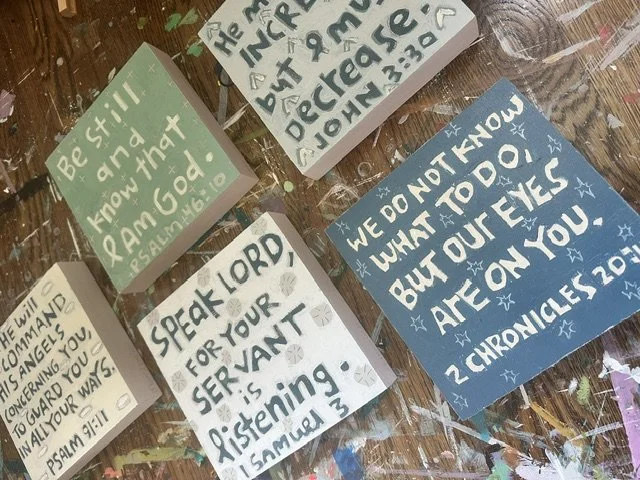 He m
INCRE
but I mu
Decrease.
JOHN 3:30
Be still
and
know that
I AM God.
PSALM 46:10
WE DO NOT KNOW
WHAT TO DO,
BUT OUR EYES
ARE ON YOU.
2 CHRONICLES 20:1
HE will
COMMAND
HIS ANGELS
CONCERNING YOU,
TO GUARD YOU
IN ALL YOUR WAYS.
PSALM 91:11
SPEAK LORD,
FOR YOUR
SERVANT
is
listening.
1 Samuel 3